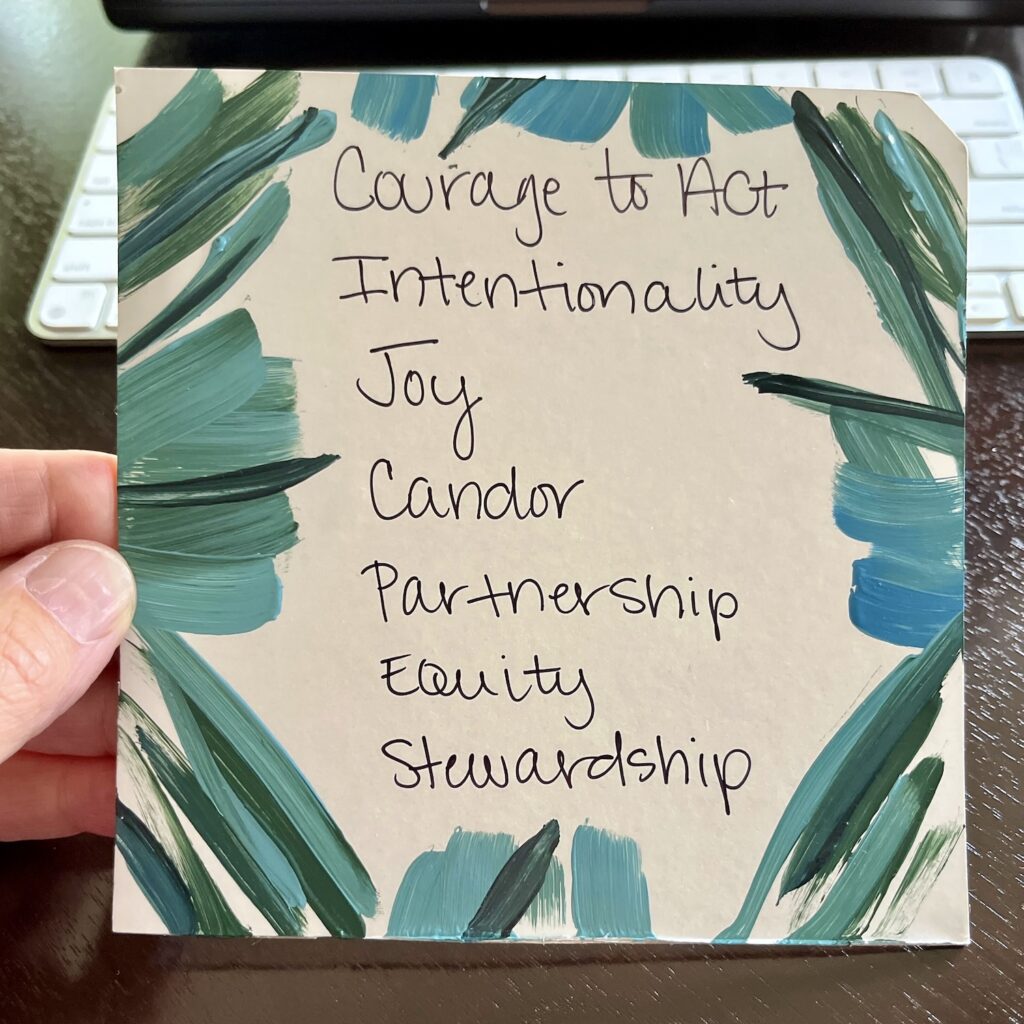 Courage to Act
Intentionality
Joy
Candor
Partnership
Equity
Stewardship